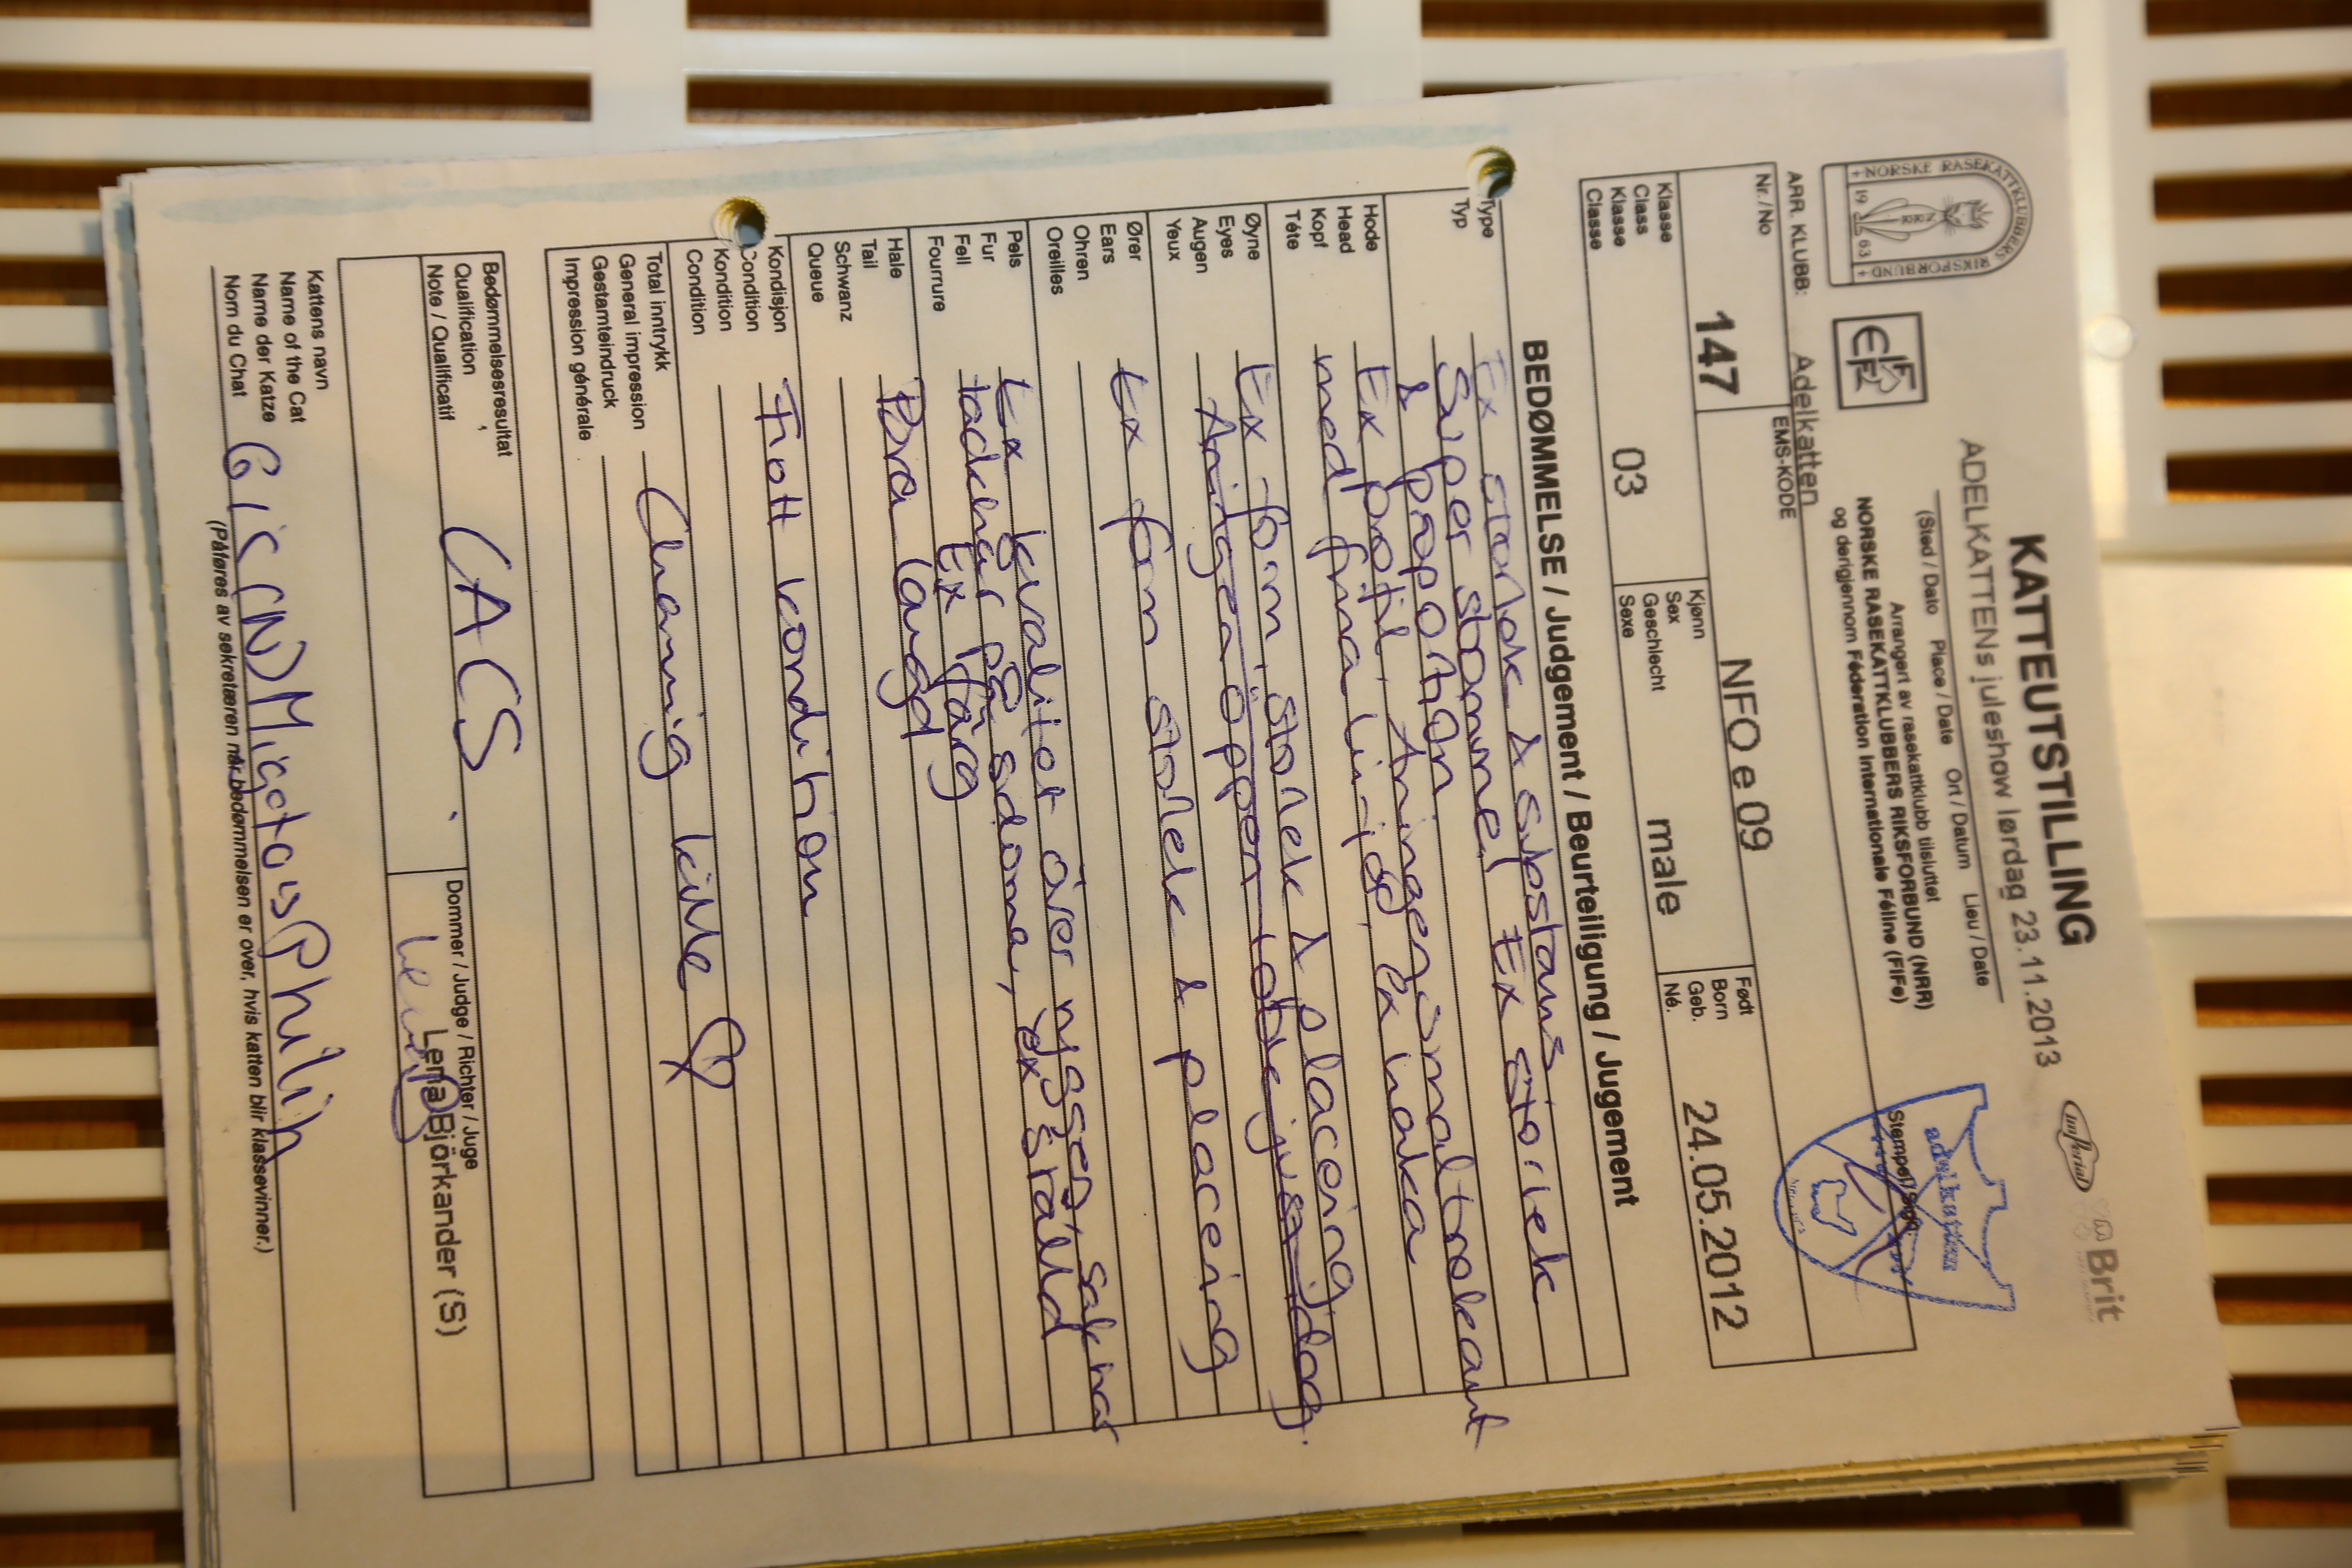 KATTEUTSTILLING
ADELKATTENs juleshow lørdag 23.11.2013
(Sted / Dato Place / Date Ort / Datum Lieu / Date
Arrangert av rasekattklubb tilsluttet
NORSKE RASEKATTKLUBBERS RIKSFORBUND (NRR)
og derigjennom Féderation Internationale Féline (FIFe)
+NORSKE RASEKATTKLUBBERS RIKSFORBUND+
19 63
NRR
FIFe
imperial
Brit
adelkatten
Stempel/Sign:
ARR. KLUBB: Adelkatten
Nr./No
147
EMS-KODE
NFO e 09
Klasse
Class
Klasse
Classe
03
Kjønn
Sex
Geschlecht
Sexe
male
Født
Born
Geb.
Né.
24.05.2012
BEDØMMELSE / Judgement / Beurteiligung / Jugement
Type
Typ
Ex storlek & substans
Super stommel Ex storlek
& proportion
Hode
Head
Kopf
Téte
Ex profil, Aningen
med fina linjer, Ex haka
Øyne
Eyes
Augen
Yeux
Ex form, storlek & placering
Aningen öppen
Ører
Ears
Ohren
Oreilles
Ex form storlek & placering
Pels
Fur
Fell
Fourrure
Ex kvalitet över ryggen, saknar
täckhår på sidorna, ex
Ex färg
Hale
Tail
Schwanz
Queue
Bra längd
Kondisjon
Condition
Kondition
Condition
Flott kondition
Total inntrykk
General impression
Gestamteindruck
Impression générale
Charmig kille
Bedømmelsesresultat
Qualification
Note / Qualificatif
CACS
Dommer / Judge / Richter / Juge
Lena Björkander (S)
Kattens navn
Name of the Cat
Name der Katze
Nom du Chat
GIC (N) Migotos Philip
(Påføres av sekretæren når bedømmelsen er over, hvis katten blir klassevinner.)